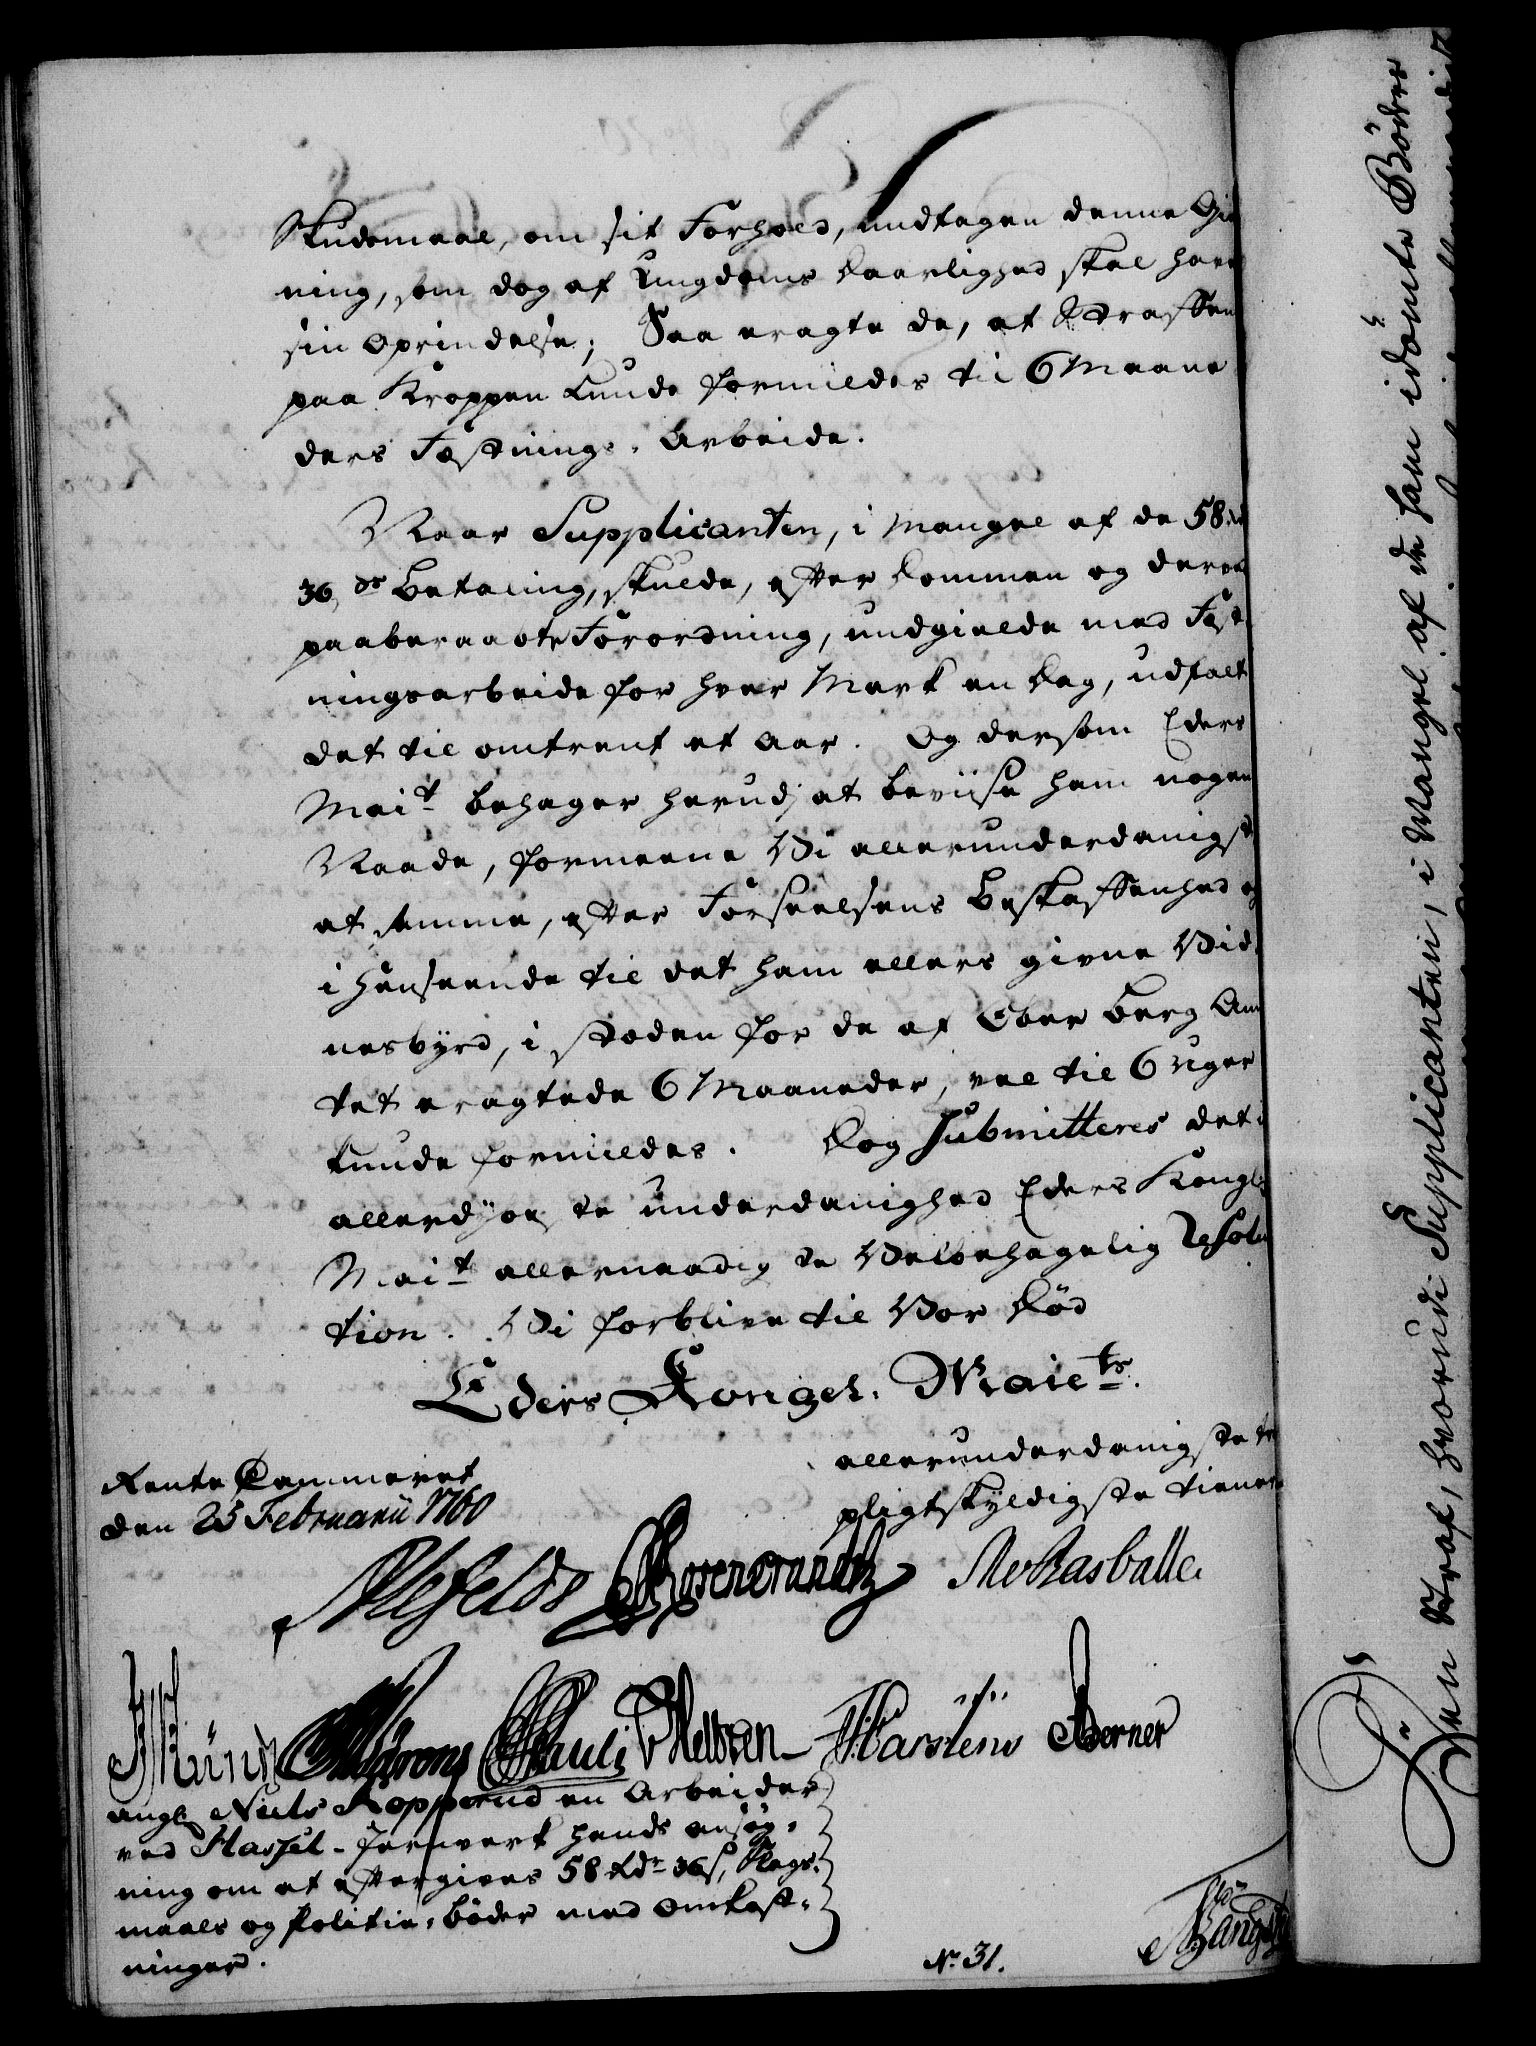 Skudsmaal, om sit Forhold, undtagen denne Gier
ning, som dog af Ungdoms Daarlighed skal have
sin Oprindelse; Saa eragte de, at Straffen
paa Kroppen kunde formildes til 6 Maane
ders Fæstnings-Arbeide.
Naar Supplicanten, i Mangel af de 58 rd
36 s. Betaling, skulde, efter Dommen og derved
paaberaabte Forordning, undgielde med Fæst
ningsarbeide for hver Mark en Dag, udfalt
det til omtrent et Aar. Og dersom Eders
Mait behager herudj at beviise ham nogen
Naade, formeene Vi allerunderdanigst
at samme, efter Forseelsens Beskaffenhed og
i henseende til det ham ellers givne Vid
nesbyrd, i steden for de af Ober Berg Am
tet eragtede 6 Maaneder, vel til 6 Uger
kunde formildes. Dog Submitteres det i
allerdybeste underdanighed Eders Kongl
Mait allernaadigste Velbehagelig Resolu
tion. Vi forblive til Vor Død
Eders Kongel. Maiets.
allerunderdanigste
pligtskyldigste tienere
Rente Cammeret
den 23 Februarii 1760
Alefeldt Rosencrantz
JMünch Pauli Holtzen JKarstens Berner
angl. Niels Kopperud en Arbeider
ved Hassel-Jernverk hands ansøg-
ning om at eftergives 58 Rdr 36 s, Slags-
maals og Politie-bøder med Omkost-
ninger.
No. 31.
Den Straf, hvorudi Supplicanten, i Mangel af de ham idømte Bøder